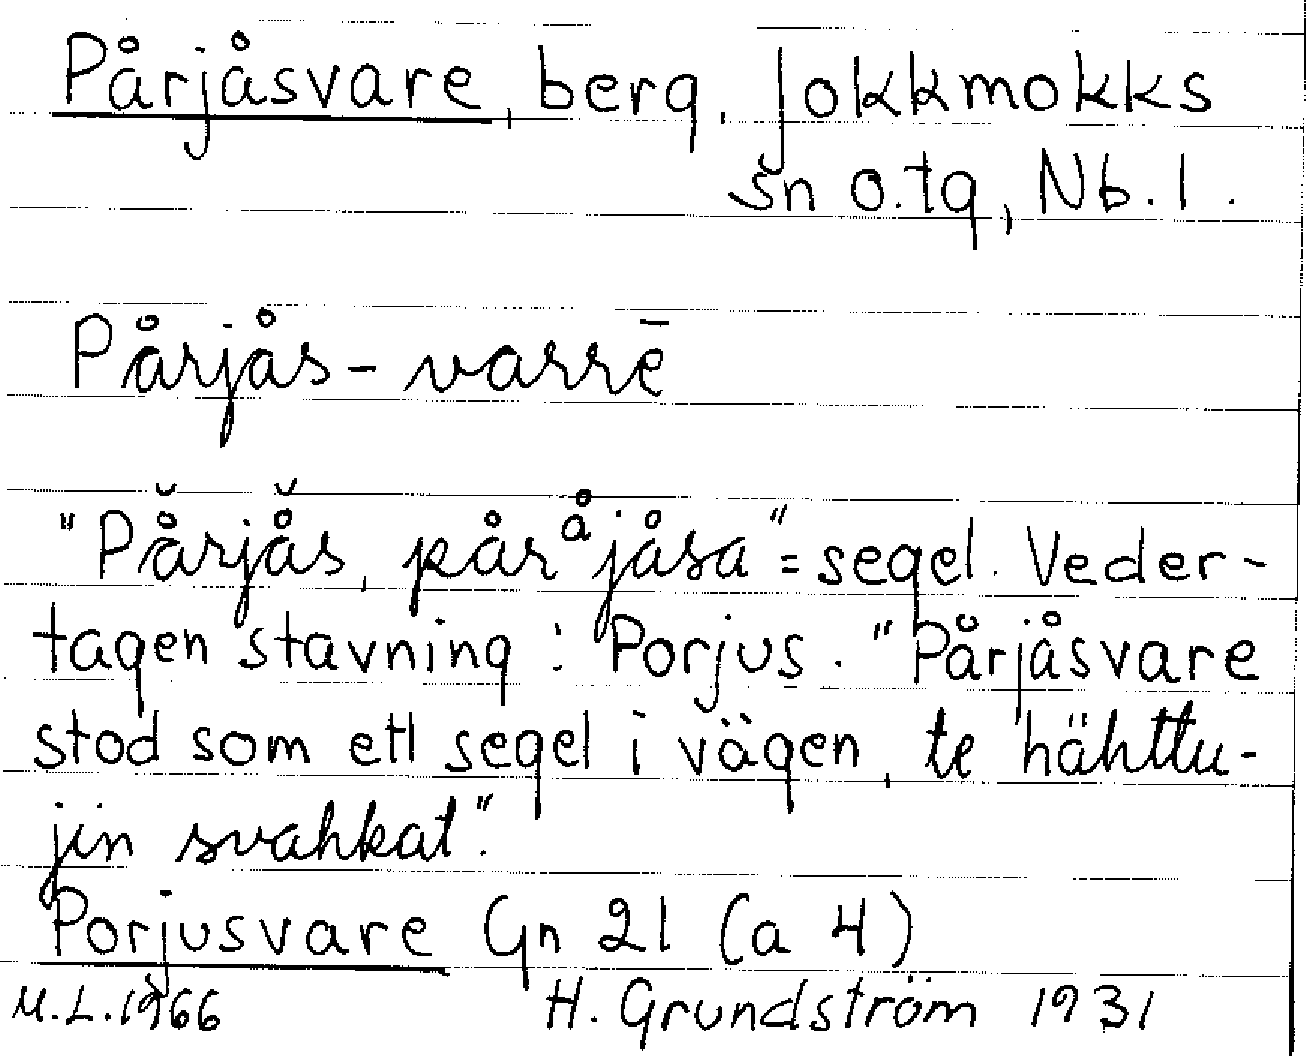 Pårjåsvare, berg, Jokkmokks
sn o. tg, Nb. l.
Pårjås-varrē
"På̆rjå̆s, pårᵃ̊jåsa" = segel. Veder-
tagen stavning: Porjus. "Pårjåsvare
stod som ett segel i vägen, te hähttu-
jin svahkat".
Porjusvare Gn 21 (a 4)
M.L. 1966 H. Grundström 1931